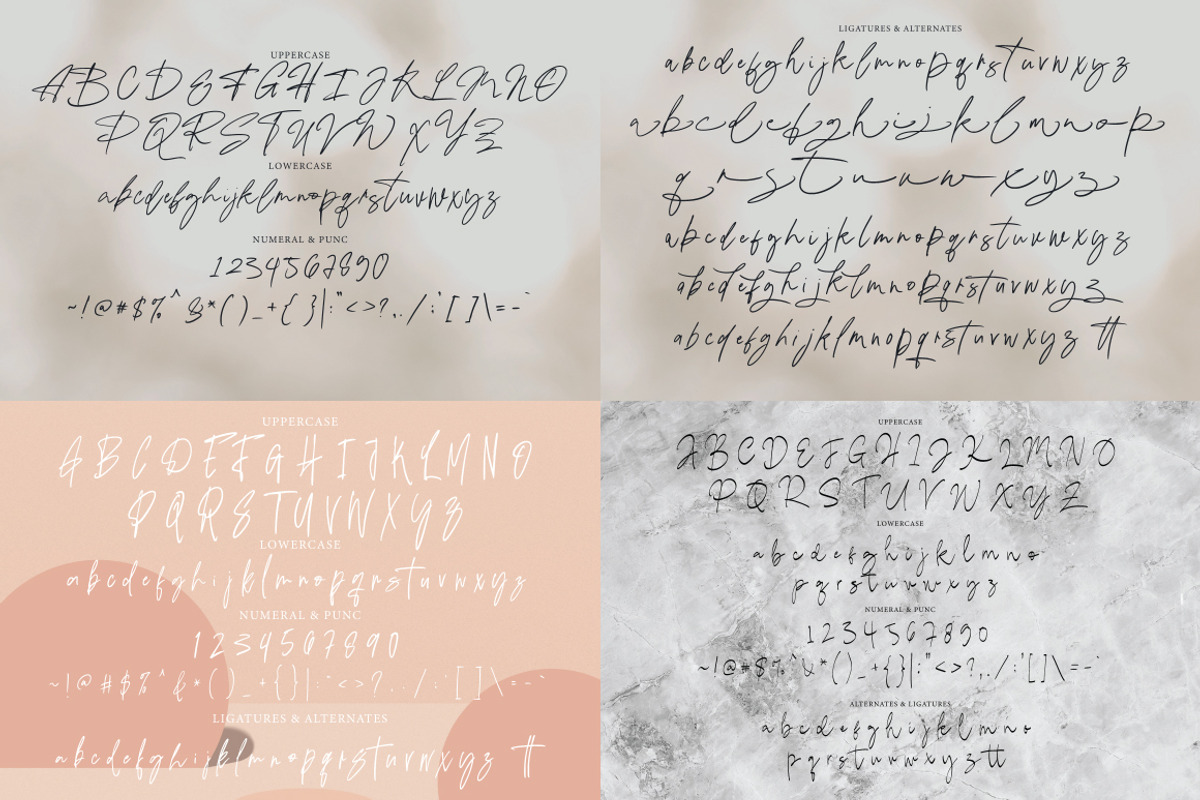 UPPERCASE
A B C D E F G H I J K L M N O
P Q R S T U V W X Y Z
LOWERCASE
a b c d e f g h i j k l m n o p q r s t u v w x y z
NUMERAL & PUNC
1 2 3 4 5 6 7 8 9 0
~ ! @ # $ % ^ & * ( ) _ + { } | : " < > ? , . / ; ' [ ] \ = - `
LIGATURES & ALTERNATES
a b c d e f g h i j k l m n o p q r s t u v w x y z
a b c d e f g h i j k l m n o p
q r s t u v w x y z
a b c d e f g h i j k l m n o p q r s t u v w x y z
a b c d e f g h i j k l m n o p q r s t u v w x y z
a b c d e f g h i j k l m n o p q r s t u v w x y z tt
UPPERCASE
A B C D E F G H I J K L M N O
P Q R S T U V W X Y Z
LOWERCASE
a b c d e f g h i j k l m n o p q r s t u v w x y z
NUMERAL & PUNC
1 2 3 4 5 6 7 8 9 0
~ ! @ # $ % ^ & * ( ) _ + { } | : " < > ? , . / ; ' [ ] \ = - `
LIGATURES & ALTERNATES
a b c d e f g h i j k l m n o p q r s t u v w x y z tt
UPPERCASE
A B C D E F G H I J K L M N O
P Q R S T U V W X Y Z
LOWERCASE
a b c d e f g h i j k l m n o
p q r s t u v w x y z
NUMERAL & PUNC
1 2 3 4 5 6 7 8 9 0
~ ! @ # $ % ^ & * ( ) _ + { } | : " < > ? , . / ; ' [ ] \ = - `
ALTERNATES & LIGATURES
a b c d e f g h i j k l m n o
p q r s t u v w x y z tt